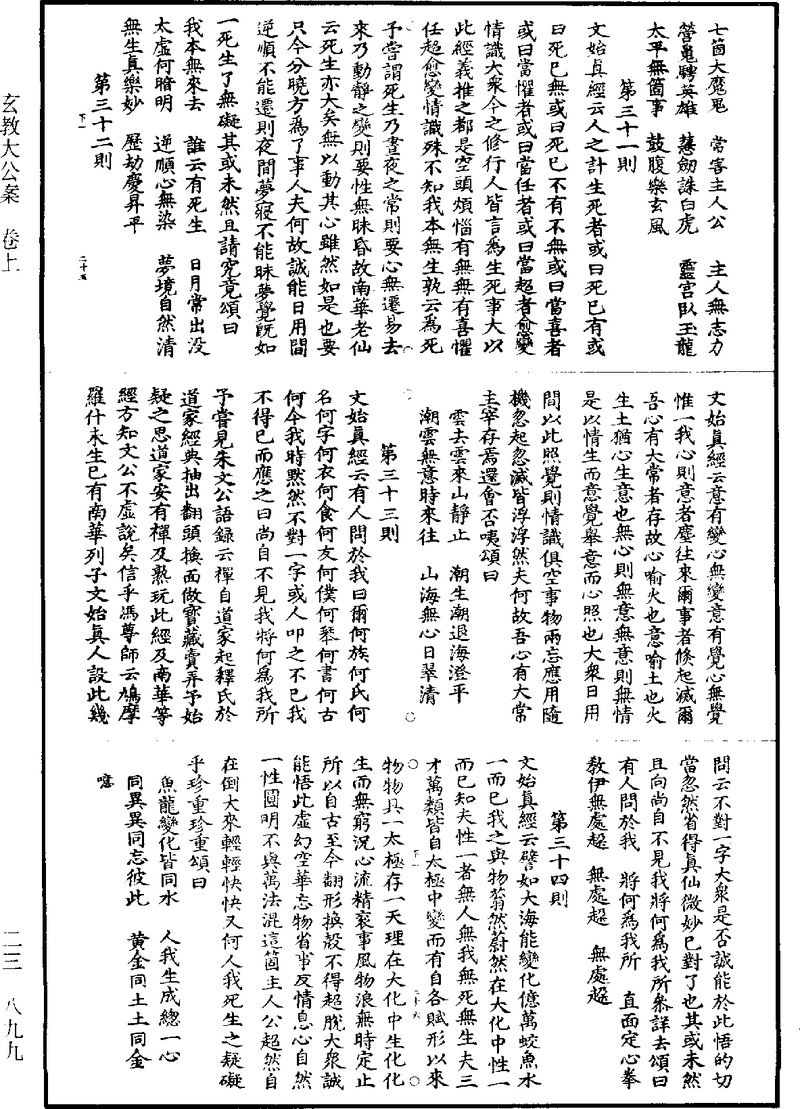 七箇大魔鬼　常害主人公　主人無志力
營鬼騁英雄　慧劒誅白虎　靈宫臥玉龍
太平無箇事　鼓腹樂玄風
第三十一則
文始真經云人之計生死者或曰死已有或
曰死已無或曰死已不有不無或曰當喜者
或曰當懼者或曰當任者或曰當超者愈變
情識大衆今之修行人皆言為生死事大以
此經義推之都是空頭煩惱有無無有喜懼
任超愈變情識殊不知我本無生孰云為死
予嘗謂死生乃晝夜之常則要心無遷易去
來乃動靜之變則要性無昧昏故南華老仙
云死生亦大矣無以動其心雖然如是也要
只今分曉方為了事人夫何故誠能日用間
逆順不能還則夜間夢寐不能昧夢覺旣如
一死生了無礙其或未然且請究竟頌曰
我本無來去　誰云有死生　日月常出没
太虛何暗明　逆順心無染　夢境自然清
無生真樂妙　歷劫慶昇平
第三十二則
下一
二十五
玄教大公案　卷上
文始真經云意有變心無變意有覺心無覺
惟一我心則意者塵往來爾事者倐起滅爾
吾心有大常者存故心喻火也意喻土也火
生土猶心生意也無心則無意無意則無情
是以情生而意覺舉意而心照也大衆日用
間以此照覺則情識俱空事物兩忘應用隨
機忽起忽滅皆浮浮然夫何故吾心有大常
主宰存焉還會否咦頌曰
雲去雲來山靜止　潮生潮退海澄平
潮雲無意時來往　山海無心日翠清
第三十三則
文始真經云有人問於我曰爾何族何氏何
名何字何衣何食何友何僕何琴何書何古
何今我時黙然不對一字或人叩之不已我
不得已而應之曰尚自不見我將何爲我所
予嘗見朱文公語錄云禪自道家起釋氏於
道家經典抽出翻頭換面做寶藏賣弄予始
疑之思道家安有禪及熟玩此經及南華等
經方知文公不虛說矣信乎馮尊師云鳩摩
羅什未生已有南華列子文始真人設此幾
問云不對一字大衆是否誠能於此悟的切
當忽然省得真仙微妙已對了也其或未然
且向尚自不見我將何爲我所叅詳去頌曰
有人問於我　將何為我所　直面定心拳
敎伊無處趍　無處趍　無處趍
第三十四則
文始真經云譬如大海能變化億萬蛟魚水
一而已我之與物蓊然蔚然在大化中性一
而已知夫性一者無人無我無死無生夫三
才萬類皆自太極中變而有自各賦形以來
物物具一太極存一天理在大化中生化化
生而無窮況心流精衮事風物浪無時定止
所以自古至今翻形換殼不得超脫大衆誠
能悟此虛幻空華忘物省事反情息心自然
一性圓明不與萬法混這箇主人公超然自
在倒大來輕輕快快又何人我死生之疑礙
乎珍重珍重頌曰
魚龍變化皆同水　人我生成總一心
同異異同忘彼此　黄金同土土同金
噫
下一
二十六
二三　八九九